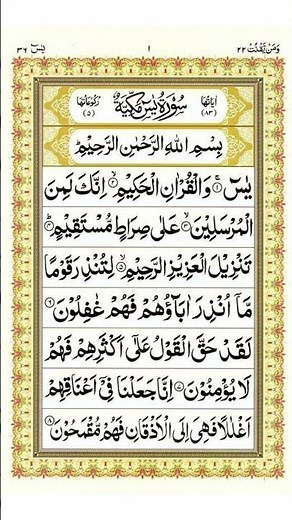 وَمَنْ يَّقْنُتْ ٢٢ ١ يٰسٓ ٣٦
اٰيَاتُهَا (٨٣) سُوْرَةُ يٰسٓ مَكِّيَّةٌ رُكُوْعَاتُهَا (٥)
بِسْمِ اللهِ الرَّحْمٰنِ الرَّحِيْمِ
يٰسٓ ۚ﴿١﴾ وَالْقُرْاٰنِ الْحَكِيْمِ ۙ﴿٢﴾ اِنَّكَ لَمِنَ
الْمُرْسَلِيْنَ ۙ﴿٣﴾ عَلٰى صِرَاطٍ مُّسْتَقِيْمٍ ؕ﴿٤﴾
تَنْزِيْلَ الْعَزِيْزِ الرَّحِيْمِ ۙ﴿٥﴾ لِتُنْذِرَ قَوْمًا
مَّاۤ اُنْذِرَ اٰبَآؤُهُمْ فَهُمْ غٰفِلُوْنَ ﴿٦﴾
لَقَدْ حَقَّ الْقَوْلُ عَلٰۤى اَكْثَرِهِمْ فَهُمْ
لَا يُؤْمِنُوْنَ ﴿٧﴾ اِنَّا جَعَلْنَا فِيْۤ اَعْنَاقِهِمْ
اَغْلٰلًا فَهِيَ اِلَى الْاَذْقَانِ فَهُمْ مُّقْمَحُوْنَ ﴿٨﴾